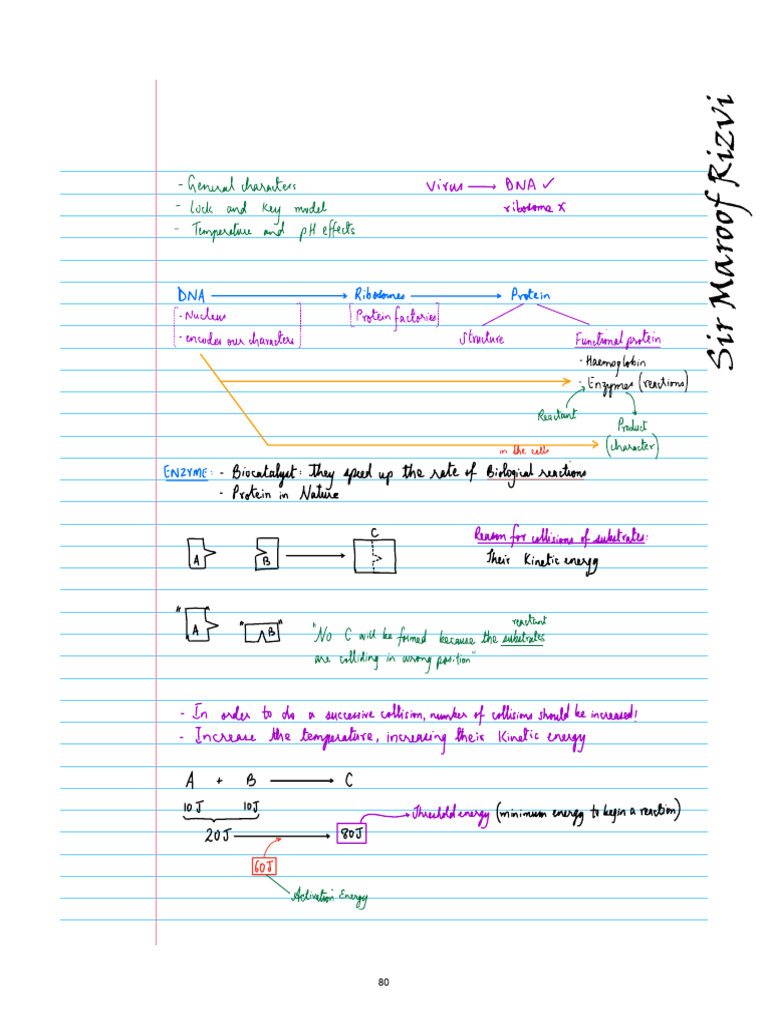 Sir Maroof Rizvi
- General characters
- Lock and Key model
- Temperature and pH effects
Virus → DNA ✓
ribosome x
DNA → Ribosomes → Protein
- Nucleus
- encodes our characters
[Protein factories]
Structure
Functional protein
- Haemoglobin
- Enzymes (reactions)
Reactant
Product
(character)
in the cells
ENZYME: - Biocatalyst: They speed up the rate of Biological reactions
- Protein in Nature
A B → C
Reason for collisions of substrates:
Their Kinetic energy
"A" "B"
reactant
"No C will be formed because the substrates
are colliding in wrong position"
- In order to do a successive collision, number of collisions should be increased!
- Increase the temperature, increasing their Kinetic energy
A + B → C
10J 10J
20J → 80J
Threshold energy (minimum energy to begin a reaction)
60J
Activation Energy
80